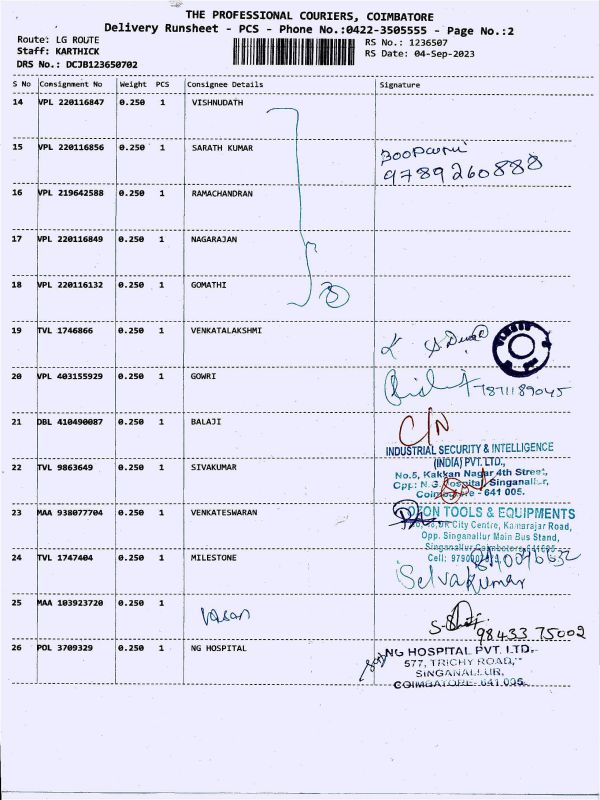 THE PROFESSIONAL COURIERS, COIMBATORE
Delivery Runsheet - PCS - Phone No.:0422-3505555 - Page No.:2
Route: LG ROUTE
RS No.: 1236507
Staff: KARTHICK
RS Date: 04-Sep-2023
DRS No.: DCJB123650702
S No Consignment No Weight PCS Consignee Details Signature
14 VPL 220116847 0.250 1 VISHNUDATH
15 VPL 220116856 0.250 1 SARATH KUMAR
9789260888
16 VPL 219642588 0.250 1 RAMACHANDRAN
17 VPL 220116849 0.250 1 NAGARAJAN
18 VPL 220116132 0.250 1 GOMATHI
19 TVL 1746866 0.250 1 VENKATALAKSHMI
20 VPL 403155929 0.250 1 GOWRI
7871189045
21 DBL 410490087 0.250 1 BALAJI
C/N
INDUSTRIAL SECURITY & INTELLIGENCE
(INDIA) PVT. LTD.,
22 TVL 9863649 0.250 1 SIVAKUMAR
No.5, Kakkan Nagar 4th Street,
Opp: N.G. Hospital, Singanallur,
Coimbatore - 641 005.
23 MAA 938077704 0.250 1 VENKATESWARAN
TOOLS & EQUIPMENTS
City Centre, Kamarajar Road,
Opp. Singanallur Main Bus Stand,
Singanallur
24 TVL 1747404 0.250 1 MILESTONE
Cell:
Selvakumar
25 MAA 103923720 0.250 1
Vasan
98433 75002
26 POL 3709329 0.250 1 NG HOSPITAL
NG HOSPITAL PVT. LTD.
577, TRICHY ROAD,
SINGANALLUR,
COIMBATORE- 641 005.